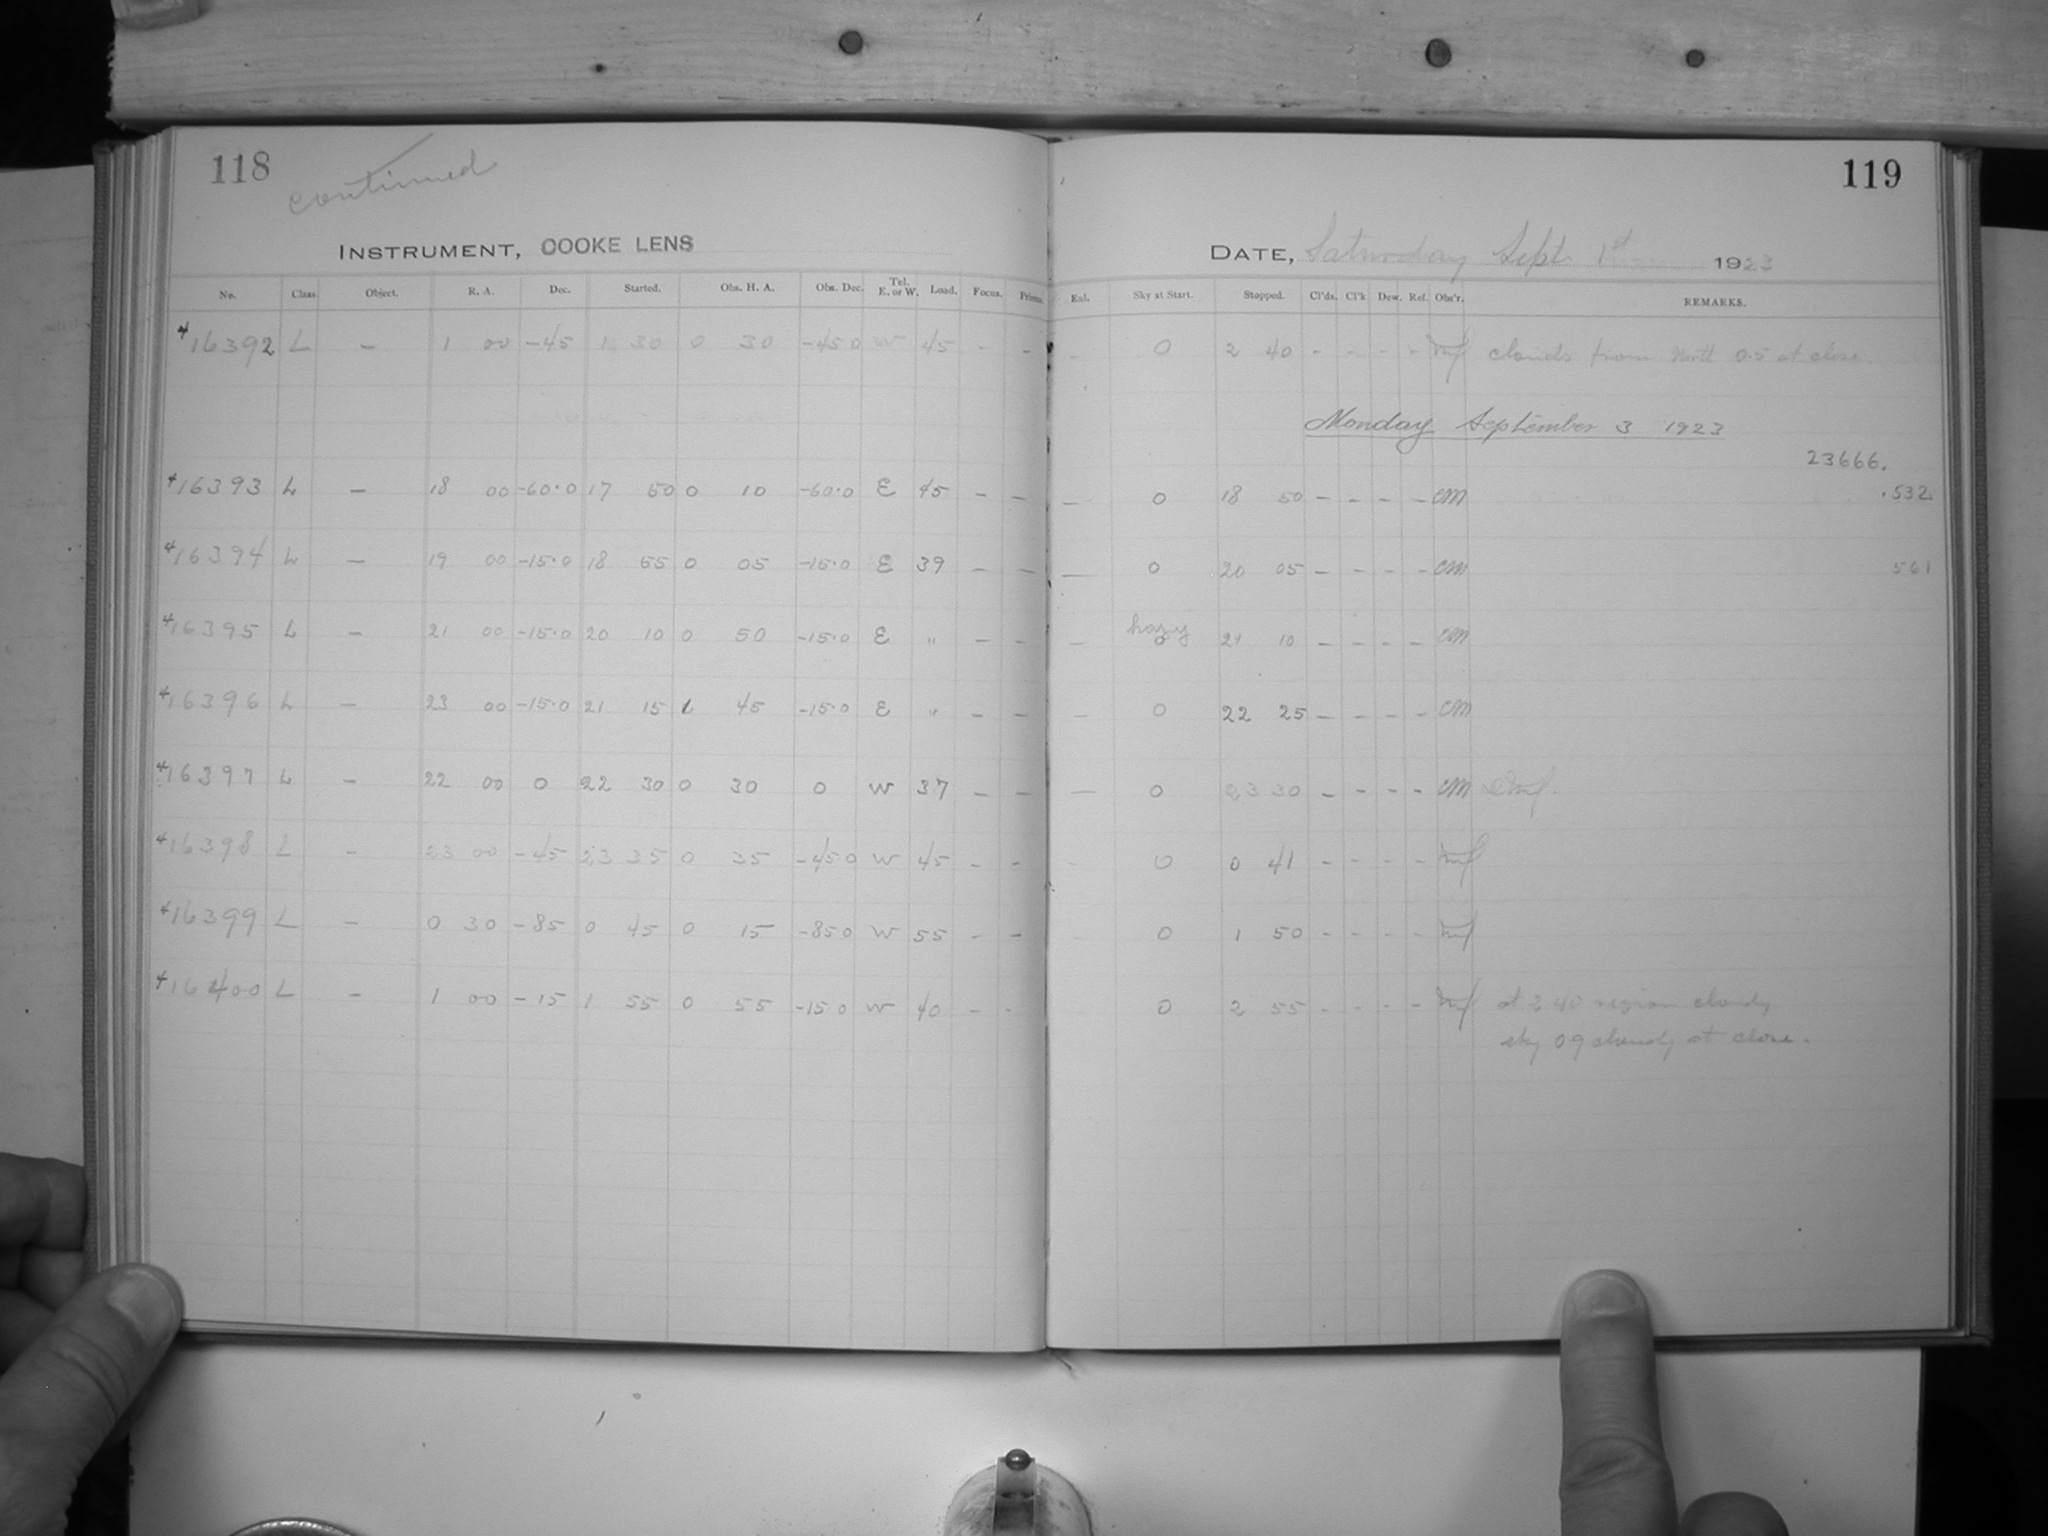 118
continued
INSTRUMENT, COOKE LENS
No. Class. Object. R. A. Dec. Started. Obs. H. A. Obs. Dec. Tel. E. or W. Load. Focus. Prisms.
4 16392 L – 1 00 -45 1 30 0 30 -45 0 W 45 - -
4 16393 L – 18 00 -60.0 17 50 0 10 -60.0 E 45 – –
4 16394 L – 19 00 -15.0 18 55 0 05 -15.0 E 39 – –
4 16395 L – 21 00 -15.0 20 10 0 50 -15.0 E " – –
4 16396 L – 23 00 -15.0 21 15 1 45 -15.0 E " – –
4 16397 L – 22 00 0 22 30 0 30 0 W 37 – –
4 16398 L – 23 00 -45 23 35 0 35 -45.0 W 45 - -
4 16399 L – 0 30 -85 0 45 0 15 -85 0 W 55 - -
4 16400 L – 1 00 -15 1 55 0 55 -15.0 W 40 - -
119
DATE, Saturday Sept. 1st 1923
Enl. Sky at Start. Stopped. Cl'ds. Cl'k Dew. Ref. Obs'r. REMARKS.
- 0 2 40 - - - - clouds from North 0.5 at close.
Monday September 3 1923
23666.
— 0 18 50 – – – – CM .532
— 0 20 05 – – – – CM 561
— hazy 0 21 10 – – – – CM
– 0 22 25 – – – – CM
— 0 23 30 – – – – CM
- 0 0 41 - - - -
0 1 50 - - - -
0 2 55 - - - - at 2 40 region cloudy
sky 0 9 cloudy at close.